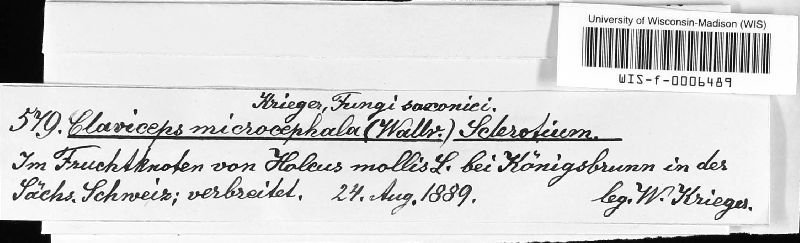 University of Wisconsin-Madison (WIS)
WIS-f-0006489
Krieger, Fungi saxonici.
579. Claviceps microcephala (Wallr.) Sclerotium.
Im Fruchtknoten von Holcus mollis L. bei Königsbrunn in der
Sächs. Schweiz; verbreitet. 24. Aug. 1889. leg. W. Krieger.